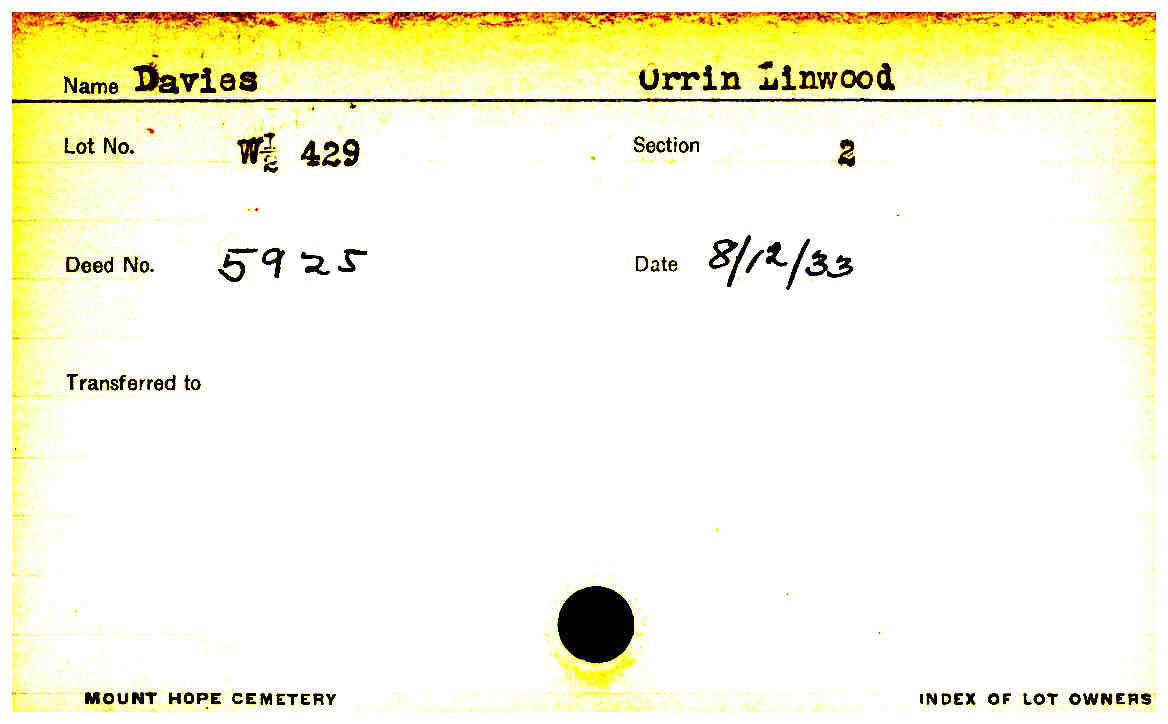 Name Davies Orrin Linwood
Lot No. W½ 429 Section 2
Deed No. 5925 Date 8/12/33
Transferred to
MOUNT HOPE CEMETERY INDEX OF LOT OWNERS